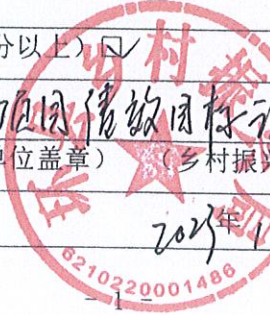 分以上）☑
项目绩效目标
单位盖章） （乡村振兴
2023年 1
6210220001486
- 1 -